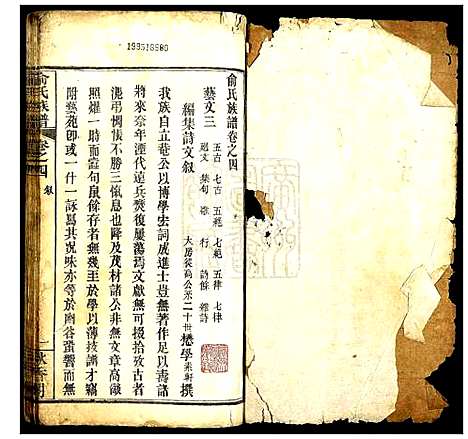 199518980
俞氏族譜卷之四
藝文三
五古 七古 五絕 七絕 五律 七律
迴文 集句 雜 行 詩餘 雜詩
編集詩文叙
大房裳高公派二十世懋學 撰
我族自文獻公以博學宏詞成進士豈無著作足以壽諸
將來奈年湮代遠兵燹復屢蕩焉文獻無可掇拾攷古者
憑弔惆悵不勝三慨息也降及茂材諸公非無文章高敵
照耀一時而遺句賸餘存者無幾至於學以薄技謭才竊
附藝苑卽或一什一詠焉其況味亦等於幽谷蛩響而無
俞氏族譜
卷之四
叙
一